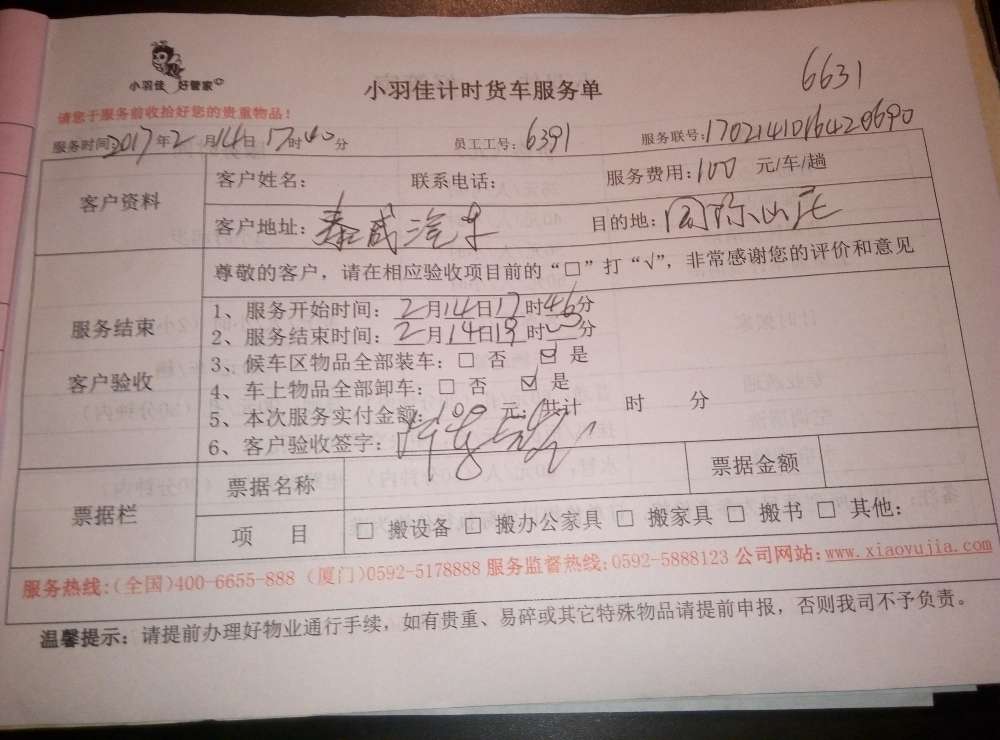 小羽佳 好管家
6631
小羽佳计时货车服务单
请您于服务前收拾好您的贵重物品！
服务时间:2017年2月14日17时40分 员工工号:6391 服务联号:1702141016420690
客户资料
客户姓名： 联系电话： 服务费用:100 元/车/趟
客户地址:泰成汽车 目的地:国际山庄
服务结束
客户验收
尊敬的客户，请在相应验收项目前的“□”打“√”，非常感谢您的评价和意见
1、服务开始时间：2月14日17时46分
2、服务结束时间：2月14日19时00分
3、候车区物品全部装车：□ 否 ☑ 是
4、车上物品全部卸车：□ 否 ☑ 是
5、本次服务实付金额：100元；共计 时 分
6、客户验收签字：
票据栏
票据名称 票据金额
项 目 □ 搬设备 □ 搬办公家具 □ 搬家具 □ 搬书 □ 其他：
服务热线:(全国)400-6655-888 (厦门)0592-5178888 服务监督热线:0592-5888123 公司网站:www.xiaoyujia.com
温馨提示：请提前办理好物业通行手续，如有贵重、易碎或其它特殊物品请提前申报，否则我司不予负责。